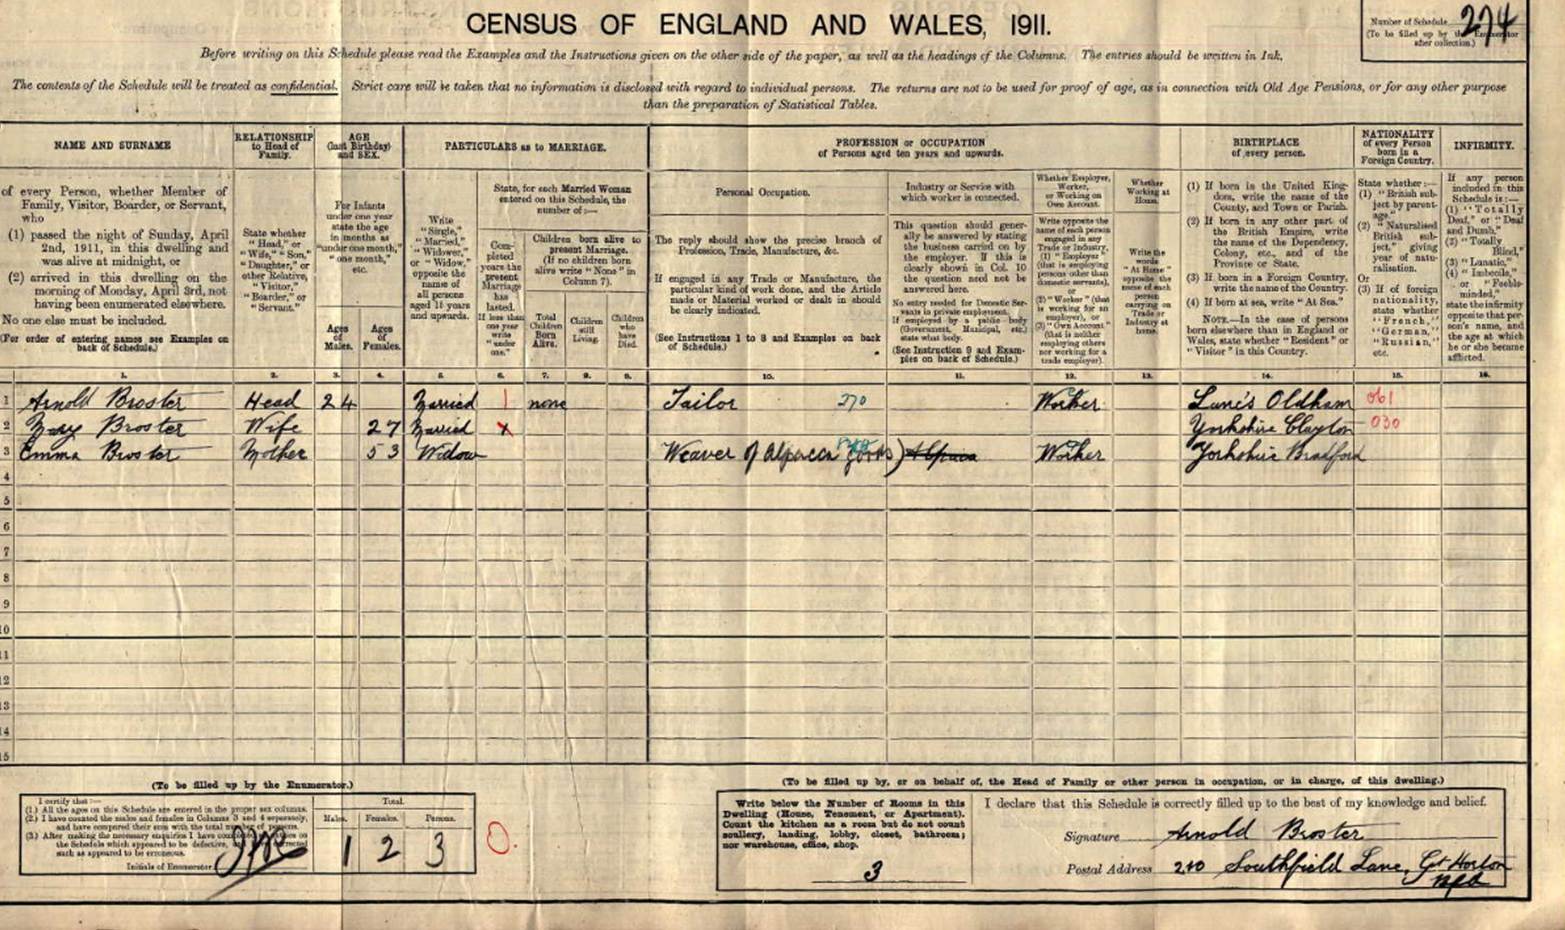 CENSUS OF ENGLAND AND WALES, 1911.
Number of Schedule 274
(To be filled up by the Enumerator
after collection.)
Before writing on this Schedule please read the Examples and the Instructions given on the other side of the paper, as well as the headings of the Columns. The entries should be written in Ink.
The contents of the Schedule will be treated as confidential. Strict care will be taken that no information is disclosed with regard to individual persons. The returns are not to be used for proof of age, as in connection with Old Age Pensions, or for any other purpose
than the preparation of Statistical Tables.
NAME AND SURNAME
of every Person, whether Member of
Family, Visitor, Boarder, or Servant,
who
(1) passed the night of Sunday, April
2nd, 1911, in this dwelling and
was alive at midnight, or
(2) arrived in this dwelling on the
morning of Monday, April 3rd, not
having been enumerated elsewhere.
No one else must be included.
(For order of entering names see Examples on
back of Schedule.)
RELATIONSHIP
to Head of
Family.
State whether
"Head," or
"Wife," "Son,"
"Daughter," or
other Relative,
"Visitor,"
"Boarder," or
"Servant."
AGE
(last Birthday)
and SEX.
For Infants
under one year
state the age
in months as
"under one month,"
"one month,"
etc.
Ages
of
Males.
Ages
of
Females.
PARTICULARS as to MARRIAGE.
Write
"Single,"
"Married,"
"Widower,"
or "Widow,"
opposite the
name of
all persons
aged 15 years
and upwards.
State, for each Married Woman
entered on this Schedule, the
number of:—
Completed
years the
present
Marriage
has
lasted.
If less than
one year
write
"under
one."
Children born alive to
present Marriage.
(If no children born
alive write "None" in
Column 7).
Total
Children
Born
Alive.
Children
still
Living.
Children
who
have
Died.
PROFESSION or OCCUPATION
of Persons aged ten years and upwards.
Personal Occupation.
The reply should show the precise branch of
Profession, Trade, Manufacture, &c.
If engaged in any Trade or Manufacture, the
particular kind of work done, and the Article
made or Material worked or dealt in should
be clearly indicated.
(See Instructions 1 to 8 and Examples on back
of Schedule.)
Industry or Service with
which worker is connected.
This question should gener-
ally be answered by stating
the business carried on by
the employer. If this is
clearly shown in Col. 10
the question need not be
answered here.
No entry needed for Domestic Ser-
vants in private employment.
If employed by a public body
(Government, Municipal, etc.)
state what body.
(See Instruction 9 and Exam-
ples on back of Schedule.)
Whether Employer,
Worker,
or Working on
Own Account.
Write opposite the
name of each person
engaged in any
Trade or Industry,
(1) "Employer"
(that is employing
persons other than
domestic servants),
or
(2) "Worker" (that
is working for an
employer), or
(3) "Own Account"
(that is neither
employing others
nor working for a
trade employer).
Whether
Working at
Home.
Write the
words
"At Home"
opposite the
name of each
person
carrying on
Trade or
Industry at
home.
BIRTHPLACE
of every person.
(1) If born in the United King-
dom, write the name of the
County, and Town or Parish.
(2) If born in any other part of
the British Empire, write
the name of the Dependency,
Colony, etc., and of the
Province or State.
(3) If born in a Foreign Country,
write the name of the Country.
(4) If born at sea, write "At Sea."
NOTE.—In the case of persons
born elsewhere than in England or
Wales, state whether "Resident" or
"Visitor" in this Country.
NATIONALITY
of every Person
born in a
Foreign Country.
State whether:—
(1) "British sub-
ject by parent-
age."
(2) "Naturalised
British sub-
ject," giving
year of natu-
ralisation.
Or
(3) If of foreign
nationality,
state whether
"French,"
"German,"
"Russian,"
etc.
INFIRMITY.
If any person
included in this
Schedule is:—
(1) "Totally
Deaf," or "Deaf
and Dumb,"
(2) "Totally
Blind,"
(3) "Lunatic,"
(4) "Imbecile,"
or "Feeble-
minded,"
state the infirmity
opposite that per-
son's name, and
the age at which
he or she became
afflicted.
1. 2. 3. 4. 5. 6. 7. 8. 9. 10. 11. 12. 13. 14. 15. 16.
1 Arnold Broster Head 24 Married 1 none Tailor 270 Worker Lancs Oldham 061
2 Mary Broster Wife 27 Married x Yorkshire Clayton 030
3 Emma Broster Mother 53 Widow Weaver of Alpacca goods) Alpaca Worker Yorkshire Bradford
4
5
6
7
8
9
10
11
12
13
14
15
(To be filled up by the Enumerator.)
I certify that:—
(1.) All the ages on this Schedule are entered in the proper sex columns.
(2.) I have counted the males and females in Columns 3 and 4 separately,
and have compared their sum with the total number of persons.
(3.) After making the necessary enquiries I have
the Schedule which appeared to be defective,
such as appeared to be erroneous.
Initials of Enumerator
Total.
Males. Females. Persons.
1 2 3
0.
(To be filled up by, or on behalf of, the Head of Family or other person in occupation, or in charge, of this dwelling.)
Write below the Number of Rooms in this
Dwelling (House, Tenement, or Apartment).
Count the kitchen as a room but do not count
scullery, landing, lobby, closet, bathroom;
nor warehouse, office, shop.
3
I declare that this Schedule is correctly filled up to the best of my knowledge and belief.
Signature Arnold Broster
Postal Address 240 Southfield Lane, Gt Horton
Bfd